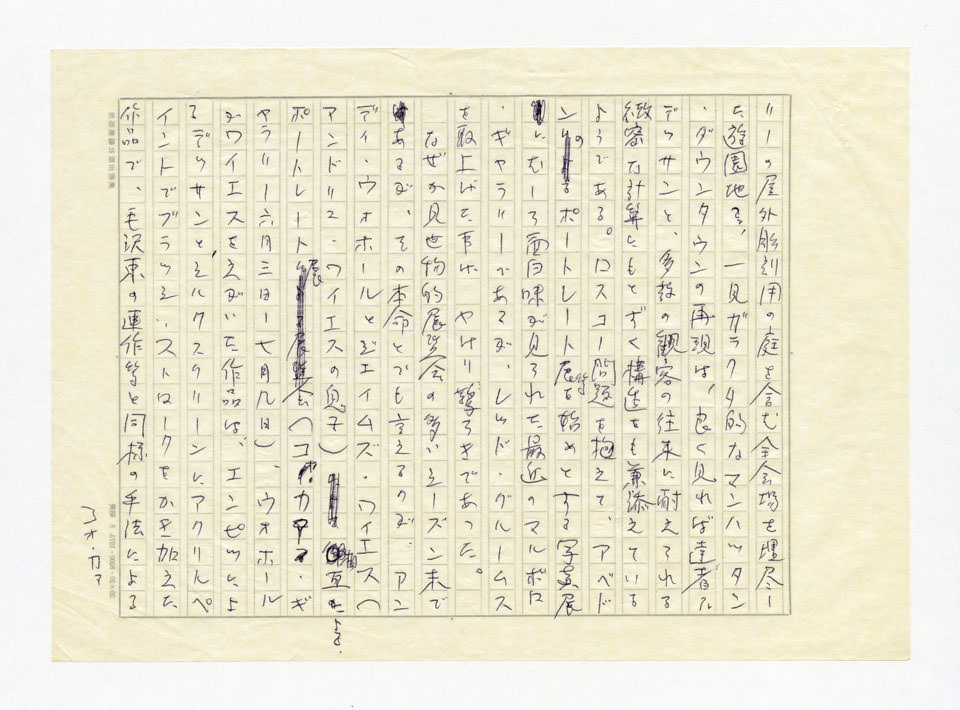 リーの屋外彫刻用の庭を含む全会場を埋尽し
た遊園地。一見ガラクタ的なマンハッタン
・ダウンタウンの再現は、良く見れば達者な
デッサンと、多数の観客の往来に耐えられる
緻密な計算にもとずく構造をも兼添えている
ようである。ロスコー問題を抱えて、アベド
ンのポートレート展等を始めとする写真展
にむしろ面白味が見られた最近のマルボロ
・ギャラリーであるが、レッド・グルームス
を取上げた事は やはり驚ろきであった。
なぜか見世物的展覧会の多いシーズン末で
あるが、その本命とでも言えるのが、アン
ディ・ウオホールとジェイムズ・ワイエス（
アンドリュ・ワイエスの息子） 互による
ポートレート展（コオ・カア・ギ
ャラリー六月三日ー七月九日）、ウオホール
がワイエスをえがいた作品は、エンピツによ
るデッサンと、シルクスクリーンにアクリルペ
イントでブラッシ・ストロークをかき加えた
作品で、毛沢東の連作等と同様の手法による
コオ・カア